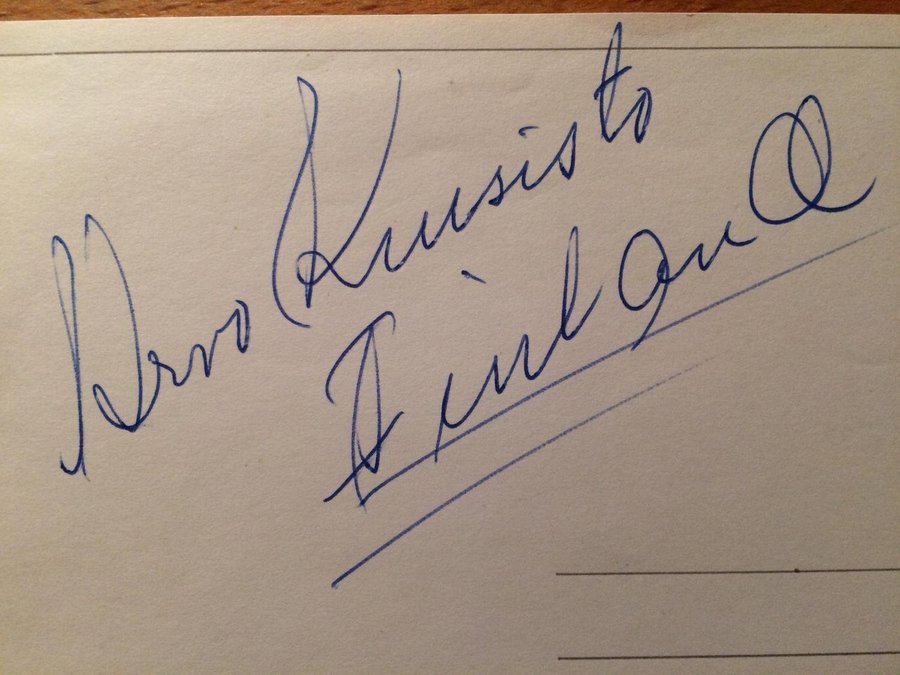 Arvo Kuusisto
Finland